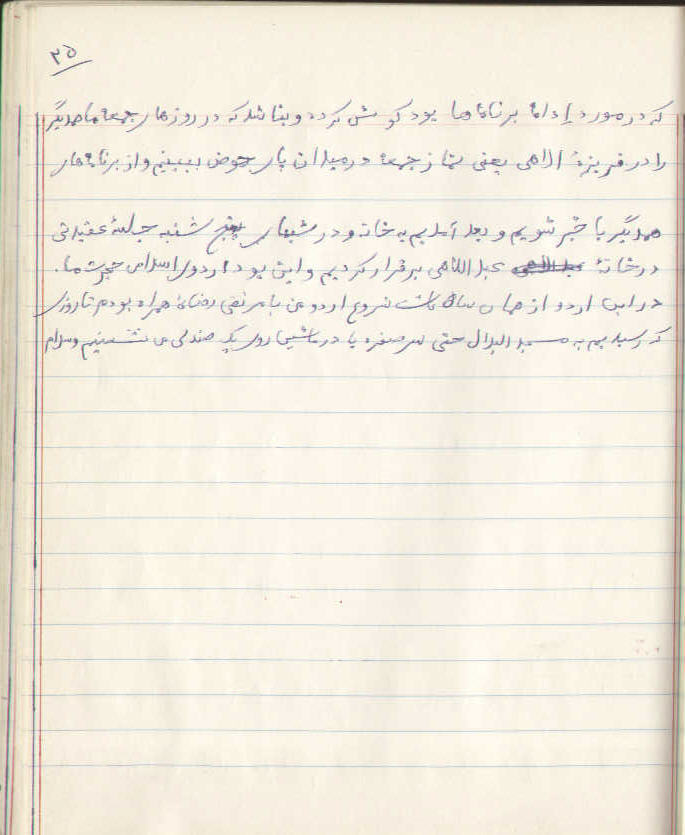 ۳۵
که در مورد ادامهٔ برنامه‌ها بود کوشش کرده و بنا شد که در روزهای جمعه ما همدیگر
را در فریزهٔ الاهی یعنی نماز جمعه در میدان پای حوض ببینیم و از برنامه‌های
همدیگر با خبر شویم و بعد آمدیم به خانه و در شبهای پنج شنبه جلسهٔ عقیدتی
در خانهٔ عبداللاهی برقرار کردیم و این بود اردوی اسلامی ما.
در این اردو از همان شروع اردو من با مرتضی رضائی همراه بودم تا روزی
که رسیدیم به مسجد البدال حتی سر صفره یا در ماشین روی یک صندلی می نشستیم والسلام